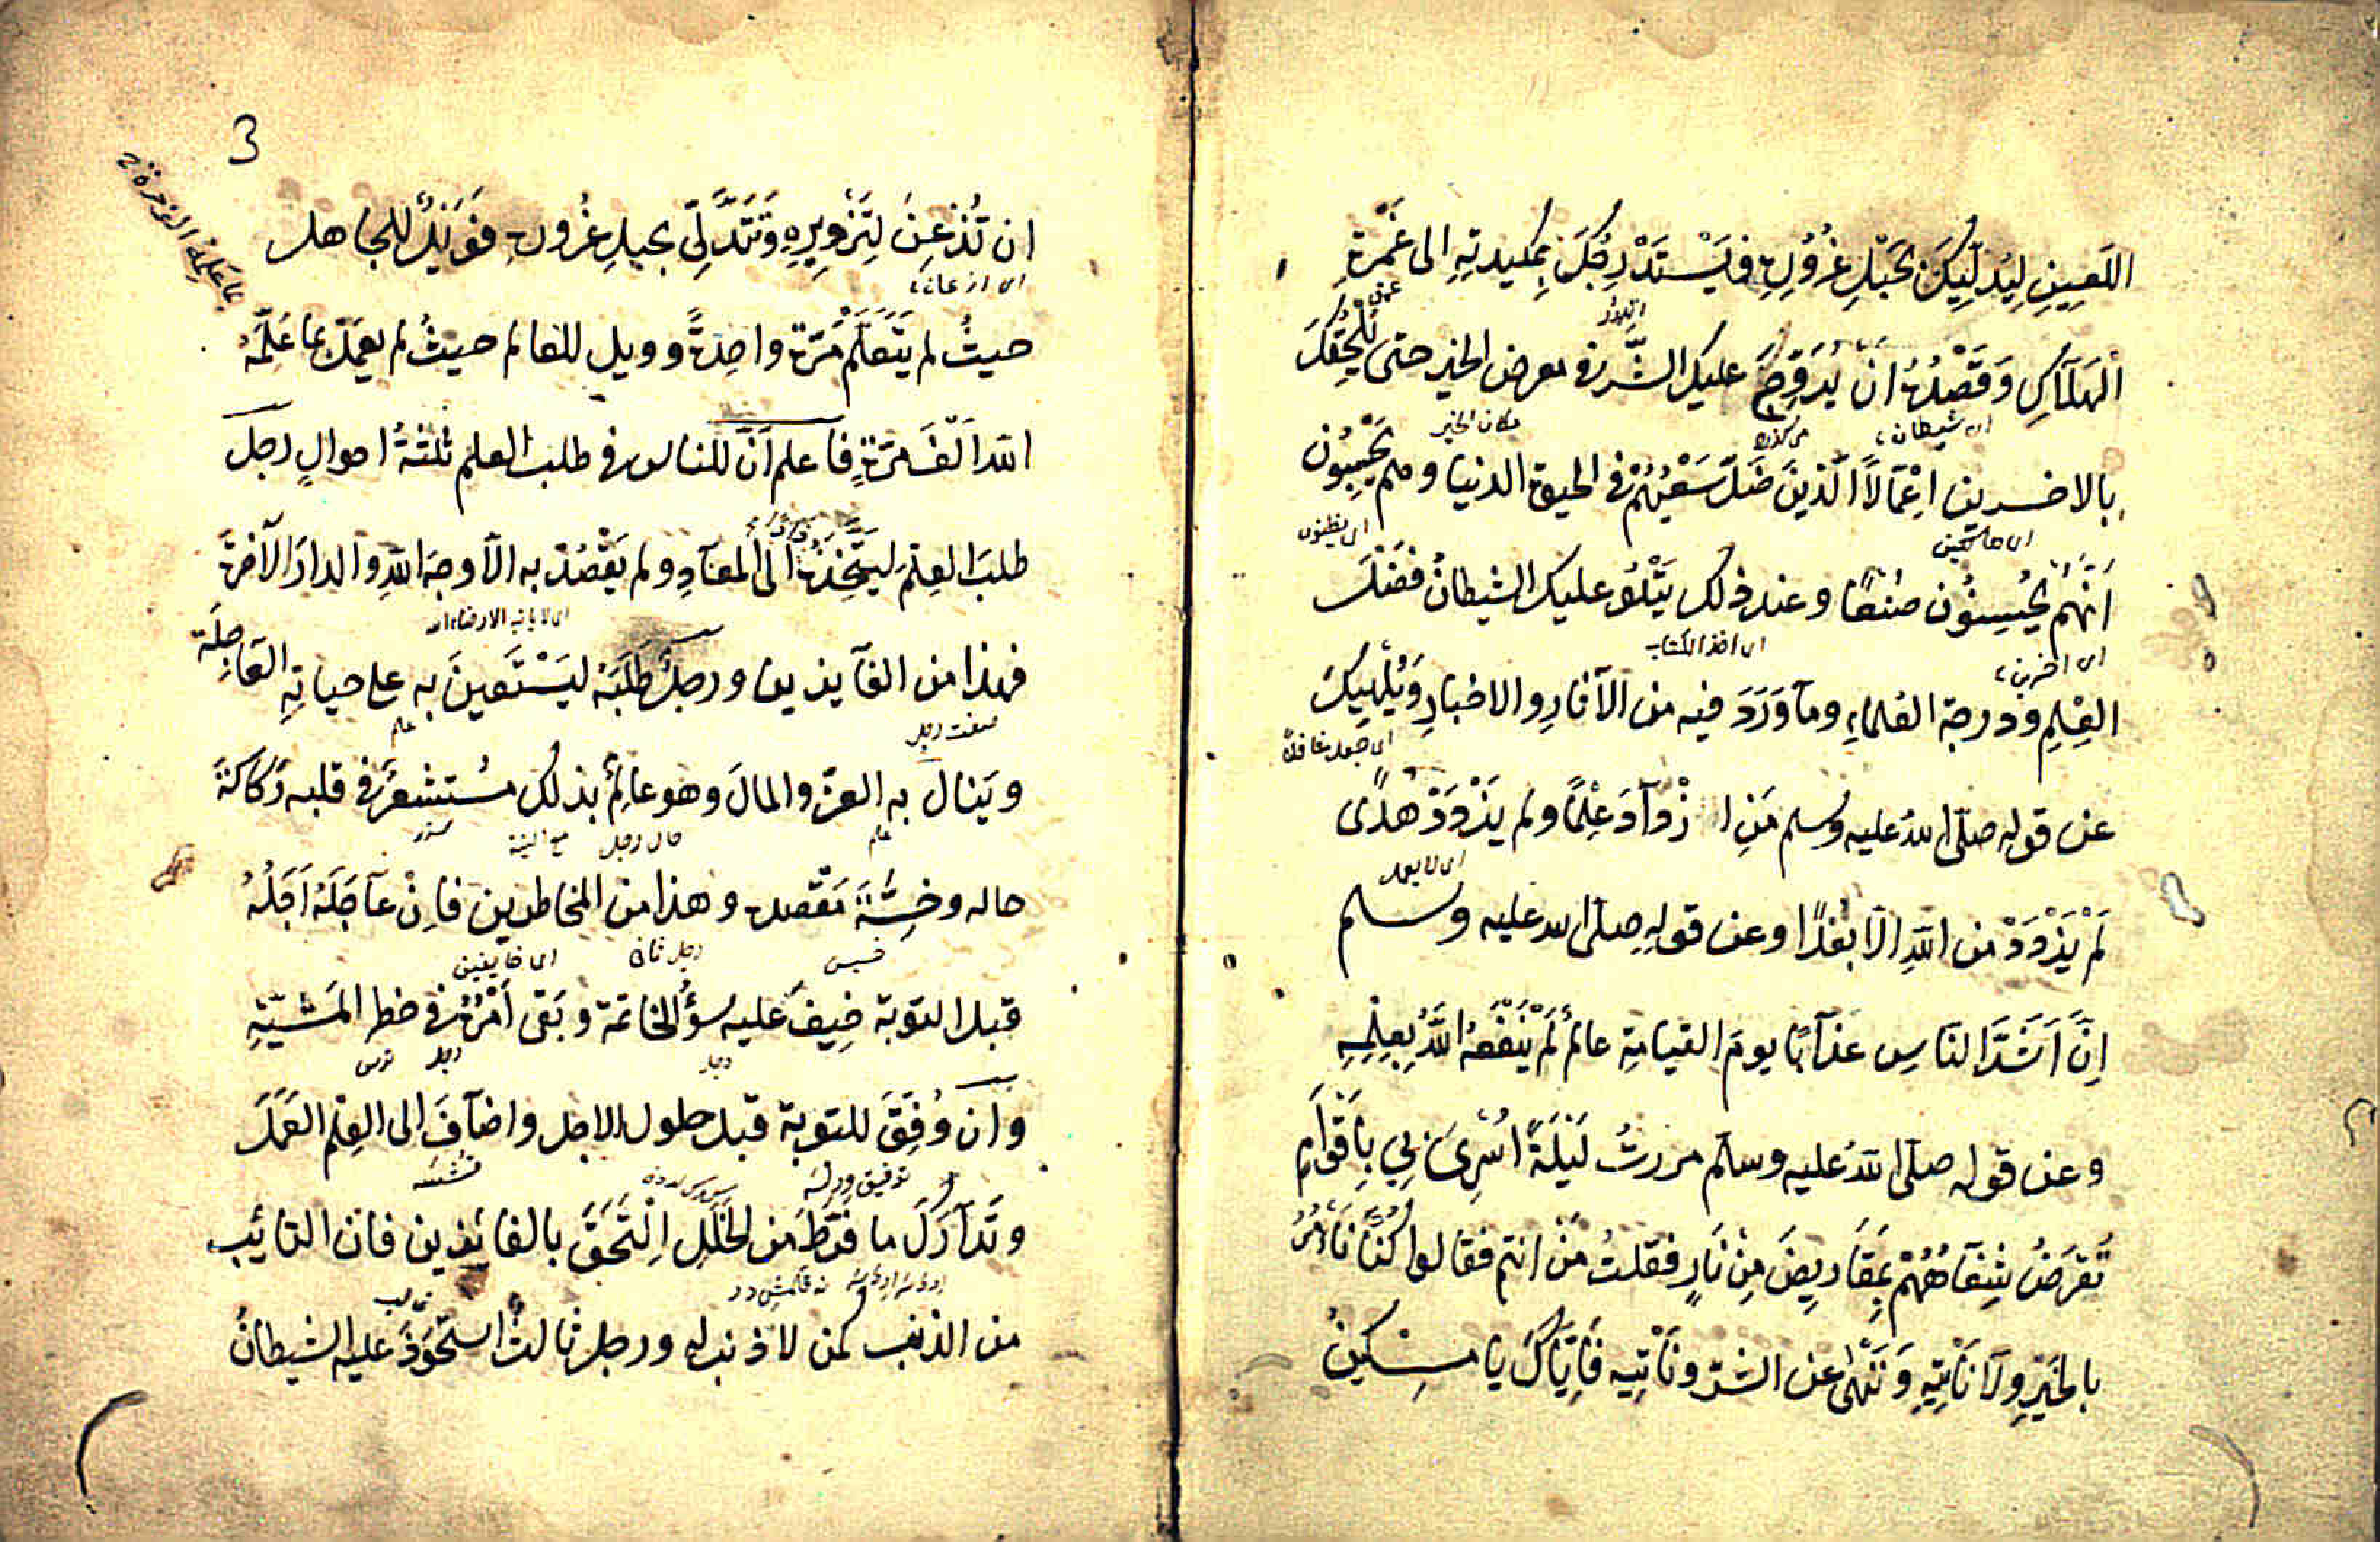 اللَّعِينِ لِيُدَلِّيَكَ بِحَبْلِ غُرُورِهِ فَيَسْتَدْرِجُكَ بِمَكِيدَتِهِ الى غَمْرَةِ
الْهَلَاكِ وَقَصْدُهُ انْ يُرَوِّجَ عليك الشَّرَّ فى معرض الخير حتى يُلْحِقَكَ
اى شيطان
مكان الخير
بالاخسرين اعْمَالًا الَّذينَ ضَلَّ سَعْيُهُمْ فى الحيوة الدنيا وهم يَحْسِبُون
اى يظنون
أَنَّهُمْ يُحْسِنُون صُنْعًا وعند ذلك يَتْلُو عليك الشيطانُ فَضْلَ
العِلْمِ ودرجة العُلماءِ وما وَرَدَ فيه من الآثارِ والاخبارِ وَيُلْهِيكَ
عن قولِه صلّى اللهُ عليه وسلم مَنِ ازْدَادَ عِلْمًا ولم يَزْدَدْ هُدًى
لَمْ يَزْدَدْ من اللهِ الَّا بُعْدًا وعن قولِهِ صلى الله عليه وسلم
اِنَّ اَشَدَّ النَّاسِ عَذَابًا يومَ القيامةِ عالمٌ لَمْ يَنْفَعْهُ اللّٰهُ بِعِلْمِهِ
وعن قوله صلّى اللهُ عليه وسلّم مررتُ لَيْلَةً اُسْرِىَ بِي بِاَقْوَامٍ
تُقْرَضُ شِفَاهُهُمْ بِمَقَارِيضَ مِنْ نَارٍ فقلتُ مَنْ انتم فقالوا كُنَّا نَأْمُرُ
بالخَيْرِ ولَا نَأْتِيهِ وَنَنْهٰى عن الشرّ ونَأْتيه فَاِيَّاكَ يا مسْكينُ
3
ان تُذْعِنَ لِتَزْوِيرِهِ وَتَتَدَلَّى بحبلِ غُرُورِهِ فَوَيْلٌ للجاهل
حيثُ لم يَتَعَلَّمْ مَرَّةً واحِدَةً وويل للعالم حيثُ لم يعمَلْ بما عَلَّمَهُ
اللهُ اَلْفَ مَرَّةٍ فاعلم اَنَّ للناس فى طلب العلم ثلثةُ احوالٍ رجل
طلبَ العِلْمَ لِيَتَّخِذَهُ زاده الى المعادِ ولم يَقْصُدْ به الّا وجهَ اللهِ والدارَ الآخرةَ
فهذا من الفآيزين ورجلٌ طَلَبَهُ ليَسْتَعينَ به على حياتِهِ العَاجِلَةِ
صفت رجل
علم
ويَنال به العزَّ والمالَ وهو عالِمٌ بذلك مُستشعرٌ فى قلبه رَكاكةَ
علم
حال رجل
حاله وخِسَّةَ مَقْصدِه وهذا من المخاطرين فاِنْ عاجَلَهُ اَجَلُهُ
خسيس
رجل ثانى
اى خايفين
قبل التوبة خِيفَ عليه سُوْءُ الخاتمة وبَقى اَمْرُهُ فى خطر المشيّةِ
رجل
رجل
وان وُفِّقَ للتوبة قبل حلول الاجل واضافَ الى العِلْمِ العَمَلَ
وتَدَارَكَ ما فَرَّطَ من الخَلَلِ اِلْتَحَقَ بالفائزين فان التائبَ
من الذنب كمن لا ذنب له ورجل ثالثٌ استَحْوَذَ عليه الشيطانُ